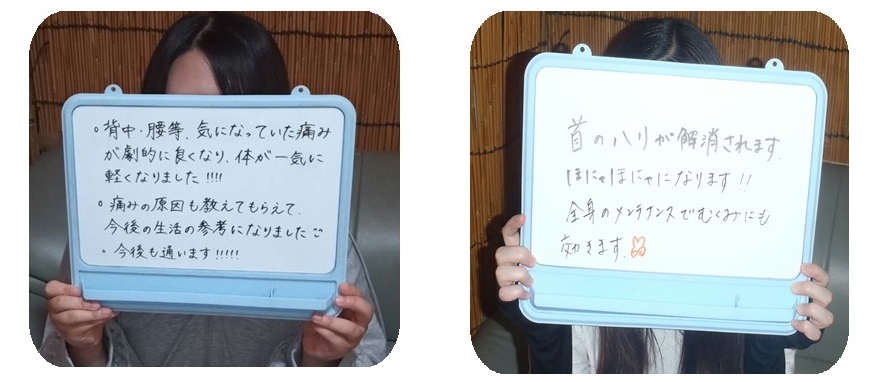 。背中・腰等、気になっていた痛み
が劇的に良くなり、体が一気に
軽くなりました!!!!
。痛みの原因も教えてもらえて、
今後の生活の参考になりました
・今後も通います!!!!!
首のハリが解消されます.
ほにゃほにゃになります!!
全身のメンテナンスでむくみにも
効きます.